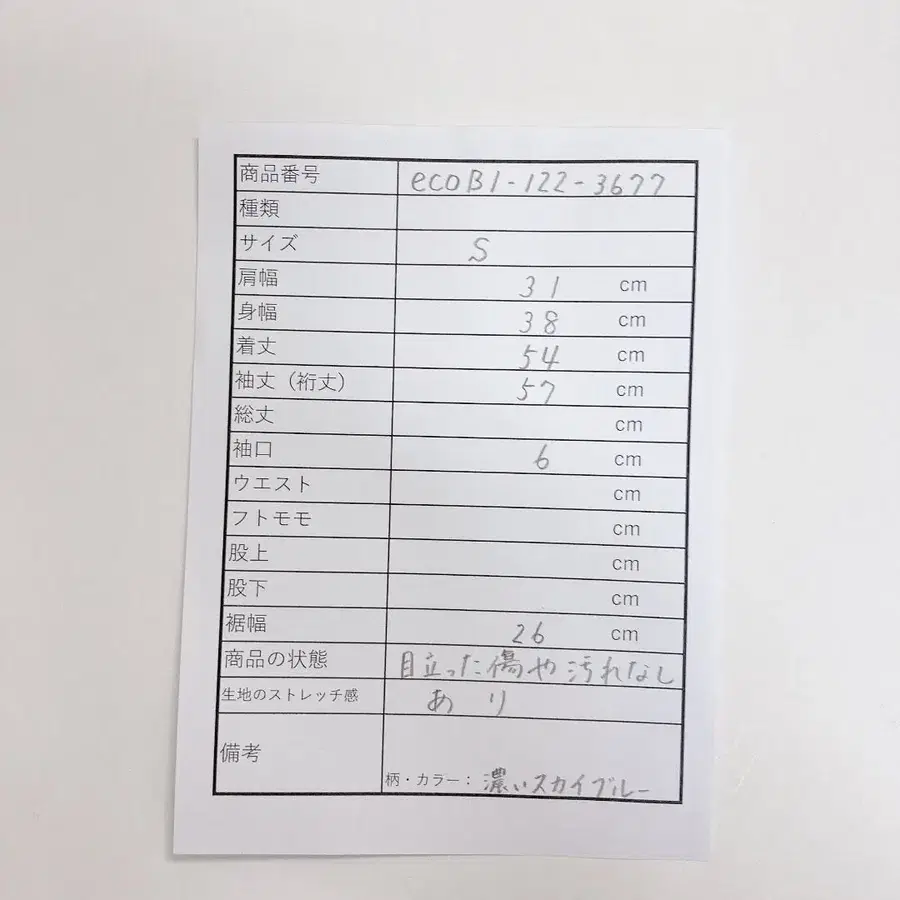 商品番号 ecoB1-122-3677
種類
サイズ S
肩幅 31 cm
身幅 38 cm
着丈 54 cm
袖丈（裄丈） 57 cm
総丈 cm
袖口 6 cm
ウエスト cm
フトモモ cm
股上 cm
股下 cm
裾幅 26 cm
商品の状態 目立った傷や汚れなし
生地のストレッチ感 あり
備考
柄・カラー： 濃いスカイブルー